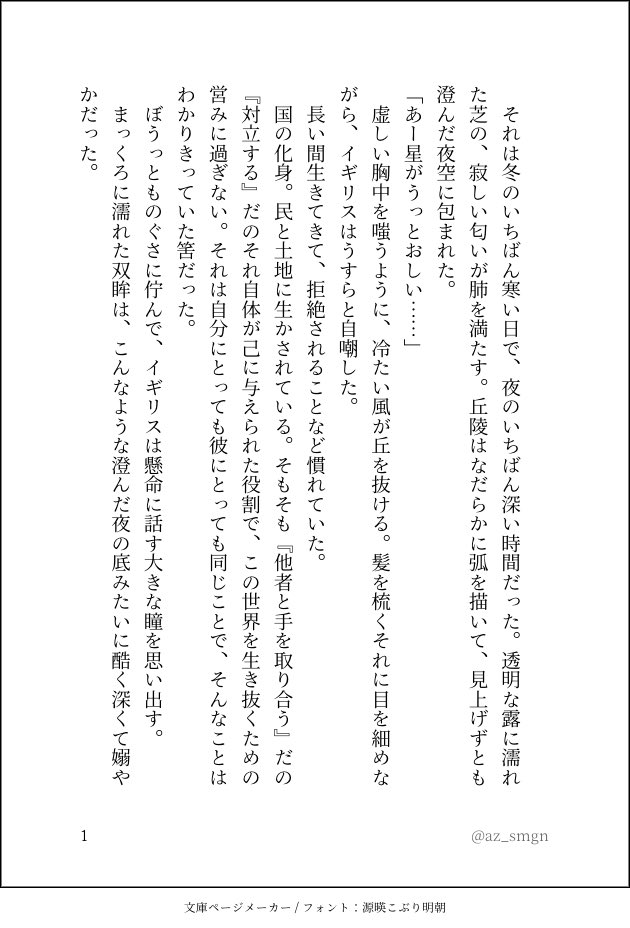 それは冬のいちばん寒い日で、夜のいちばん深い時間だった。透明な露に濡れ
た芝の、寂しい匂いが肺を満たす。丘陵はなだらかに弧を描いて、見上げずとも
澄んだ夜空に包まれた。
「あー星がうっとおしい……」
　虚しい胸中を嗤うように、冷たい風が丘を抜ける。髪を梳くそれに目を細めな
がら、イギリスはうすらと自嘲した。
　長い間生きてきて、拒絶されることなど慣れていた。
　国の化身。民と土地に生かされている。そもそも『他者と手を取り合う』だの
『対立する』だのそれ自体が己に与えられた役割で、この世界を生き抜くための
営みに過ぎない。それは自分にとっても彼にとっても同じことで、そんなことは
わかりきっていた筈だった。
　ぼうっとものぐさに佇んで、イギリスは懸命に話す大きな瞳を思い出す。
　まっくろに濡れた双眸は、こんなような澄んだ夜の底みたいに酷く深くて嫋や
かだった。
1
@az_smgn
文庫ページメーカー / フォント：源暎こぶり明朝